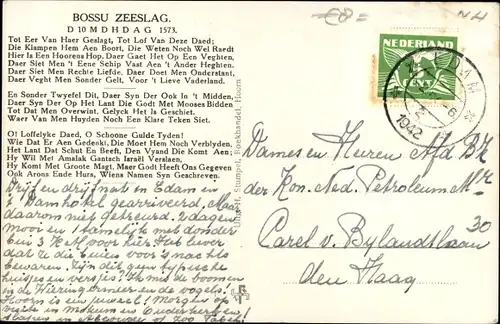 BOSSU ZEESLAG.
D 10 M D H D A G 1573.
Tot Eer Van Haer Geslagt, Tot Lof Van Deze Daed;
Die Klampen Hem Aen Boort, Die Weten Noch Wel Raedt
Hier Is In Een Hoorens Hop. Daer Gaet Het Op Een Veghten,
Daer Siet Men 't Eene Schip Vast Aen 't Ander Heghten.
Daer Siet Men Rechte Liefde. Daer Doet Men Onderstant,
Daer Veght Men Sonder Gelt, Voor 't Lieve Vaderland.
En Sonder Twyefel Dit, Daer Syn Der Ook In 't Midden,
Daer Syn Der Op Het Lant Die Godt Met Mooses Bidden
Tot Dat Men Overwint, Gelyck Het Is Geschiet.
Waer Van Men Huyden Noch Een Klare Teken Siet.
O! Loffelyke Daed, O Schoone Gulde Tyden!
Wie Dat Er Aen Gedenkt, Die Moet Hem Noch Verblyden.
Het Lant Dat Schut En Beeft, Den Vyand Die Komt Aen;
Hy Wil Met Amalak Gantsch Israël Verslaen,
Hy Komt Met Groote Magt, Maer Godt Heeft Ons Gegeven
Ook Arons Ende Hurs, Wiens Namen Syn Geschreven.
Uitg. H. Stumpel, Boekhandel, Hoorn
NEDERLAND
CENT
EDAM
1942
Drijf en drijfnat in Edam en
't Damhotel gearriveerd. Maar
daarom niet getreurd. 2 dagen
mooi en 1 namelijk met donder
en 3 H.K. voor hier. Hat liever
dat ze die buien voor 's nachts
bewaren. Zijn dit geen typische
huisjes en versjes! Ik mis de boomen
in de Wieringermeer en de vogels!
Hoorn is een juweel! Morgen op
visite in Makkum en Ouderkerk en
slapen in Abcoude
Dames en Heeren Afd B.K.
der Kon. Ned. Petroleum Mij
Carel v. Bylandtlaan
30
den Haag